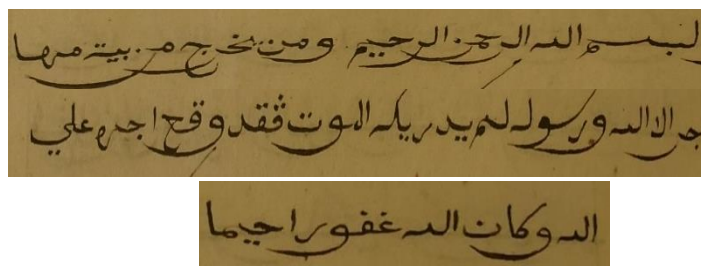 بسم الله الرحمن الرحيم ومن يخرج من بيته مها
جرا الا الله ورسوله لم يدريكه الموت فقد وقع اجره علي
الله وكان الله غفورا حيما